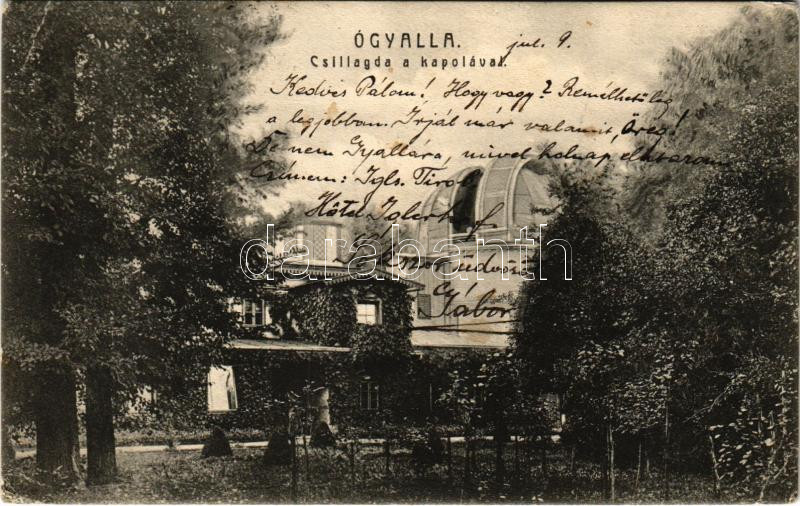 ÓGYALLA.
jul. 9.
Csillagda a kapolával.
Kedves Pálom! Hogy vagy? Remélhetőleg
a legjobban. Irjál már valamit, Öreg!
De nem Gyallára, mivel holnap elutazom
Czimem: Igls. Tirol
Hôtel Iglerhof
darabanth
Gábor